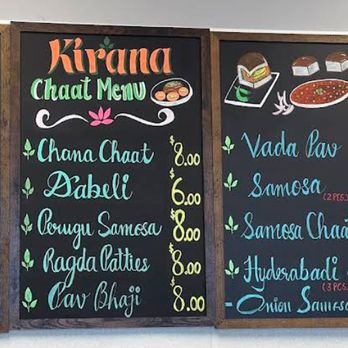 Kirana
Chaat Menu
Chana Chaat $8.00
Dabeli $6.00
Perugu Samosa $8.00
Ragda Patties $8.00
Pav Bhaji $8.00
Vada Pav
Samosa
(2 PCS.
Samosa Chaat
Hyderabadi
(3 PCS.
- Onion Samosa